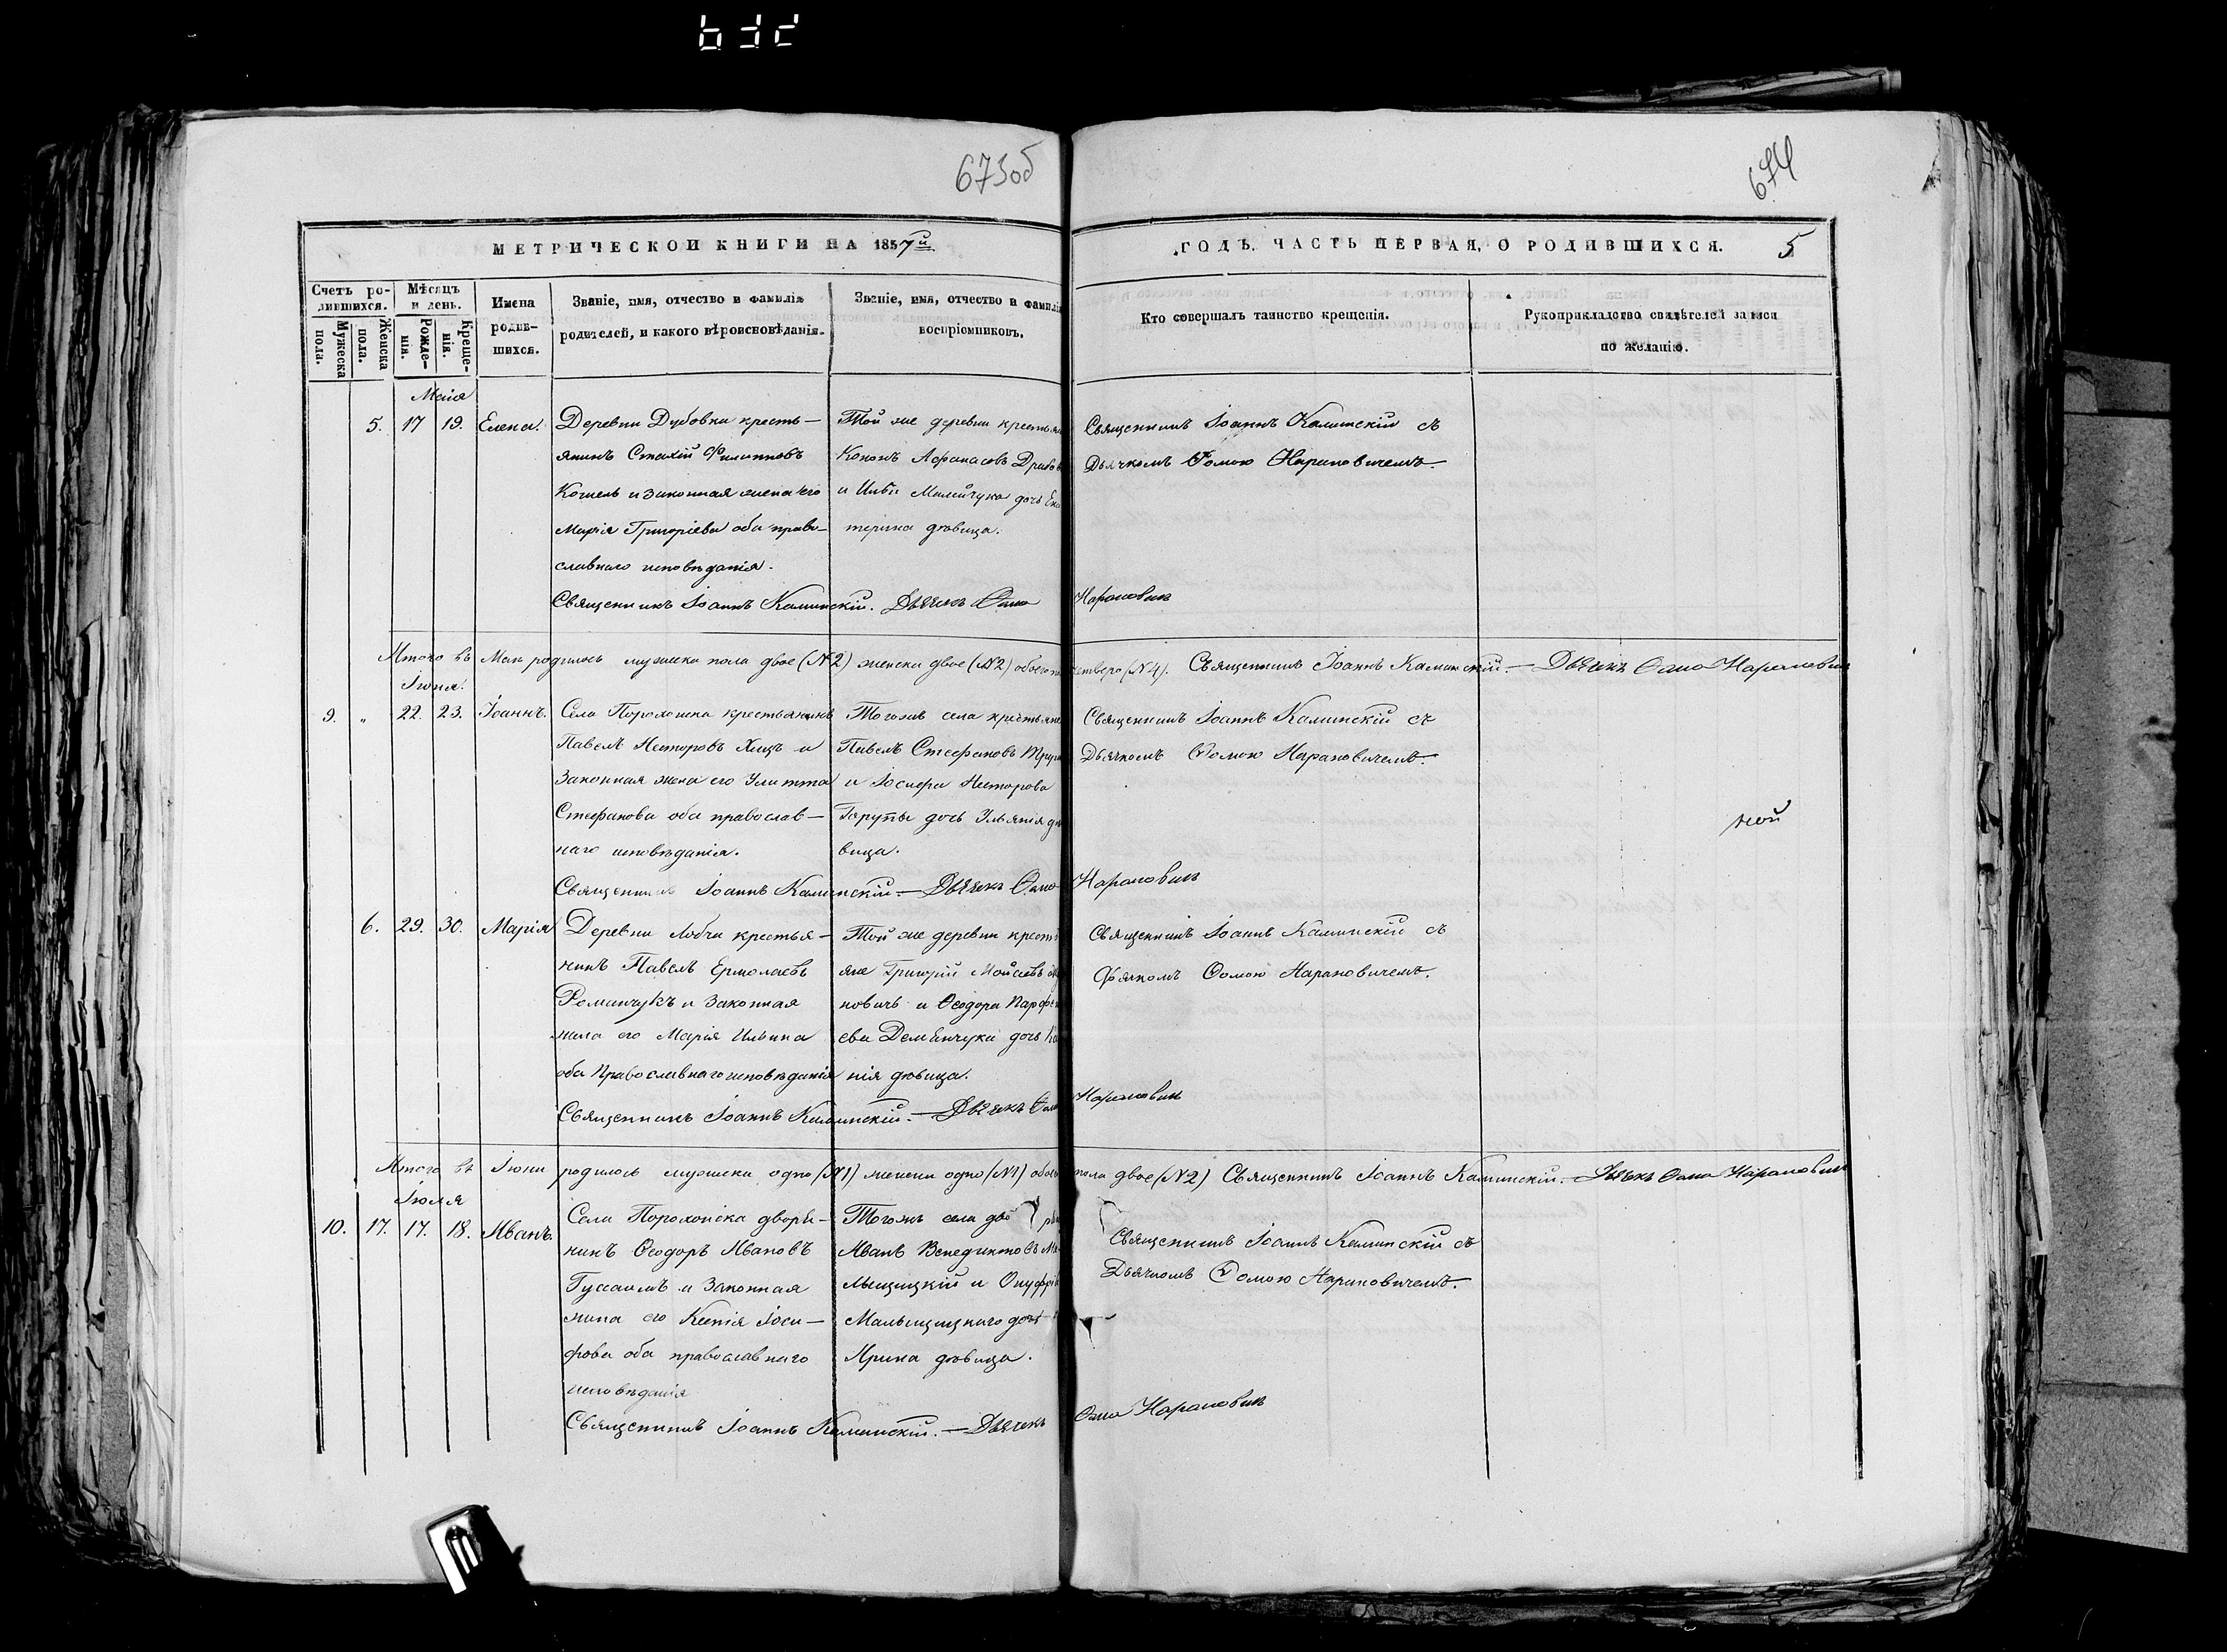 673об
674
МЕТРИЧЕСКОЙ КНИГИ НА 1857й
ГОДЪ. ЧАСТЬ ПЕРВАЯ, О РОДИВШИХСЯ.
5
Счетъ ро-
дившихся.
Мужеска
пола.
Женска
пола.
Мѣсяцъ
и день.
Рожде-
нія.
Креще-
нія.
Имена
родив-
шихся.
Званіе, имя, отчество и фамилія
родителей, и какого вѣроисповѣданія.
Званіе, имя, отчество и фамилія
воспріемниковъ.
Кто совершалъ таинство крещенія.
Рукоприкладство свидѣтелей записи
по желанію.
Маія
5. 17 19. Елена.
Деревни Дубовки кресть-
янинъ Стахій Филипповъ
Кошель и законная жена его
Марія Григоріева оба право-
славнаго исповѣданія.
Той же деревни крестьяни
Кононъ Афанасовъ
и Ильи дочь Ека
терина дѣвица.
Священникъ Іоаннъ Калинскій съ
Дьячкомъ Ѳомою Нарановичемъ.
Священникъ Іоаннъ Калинскій. Дьячекъ Ѳома Нарановичъ
Итого въ Маи родилось мужеска пола двое (№2) женска двое (№2) обоего четверо (№4). Священникъ Іоаннъ Калинскій. — Дьячекъ Ѳома Нарановичъ
Іюня.
9. " 22. 23. Іоаннъ.
Села Порохонска крестьянинъ
Павелъ Несторовъ Хицъ и
Законная жена его Улитта
Стефанова оба православ-
наго исповѣданія.
Тогожъ села крестьяне
Павелъ Стефановъ
и Іосифа Несторова
дочь Ульянія дѣ
вица.
Священникъ Іоаннъ Калинскій съ
Дьячкомъ Ѳомою Нарановичемъ.
Священникъ Іоаннъ Калинскій — Дьячекъ Ѳома Нарановичъ
6. 29. 30. Марія
Деревни Лобчи крестья-
нинъ Павелъ Ермолаевъ
Романчукъ и Законная
жена его Марія Ильина
оба Православнаго исповѣданія
Той же деревни кресть
яне Григорій Мойсеевъ
новичъ и Ѳеодора Парфен
ева Деменчука дочь
нія дѣвица.
Священникъ Іоаннъ Калинскій съ
Дьячкомъ Ѳомою Нарановичемъ.
Священникъ Іоаннъ Калинскій. — Дьячекъ Ѳома Нарановичъ
Итого въ Іюни родилось мужеска одно (№1) женска одно (№1) обоего пола двое (№2) Священникъ Іоаннъ Калинскій. — Дьячекъ Ѳома Нарановичъ
Іюля
10. 17. 17. 18. Иванъ.
Села Порохонска дворя-
нинъ Ѳеодоръ Ивановъ
и Законная
жина его Ксенія Іоси-
фова оба православнаго
исповѣданія
Тогожъ села
Иванъ Венедиктовъ Ма-
лыщицкій и Онуфрія
Малыщицкаго дочь
Ирина дѣвица.
Священникъ Іоаннъ Калинскій съ
Дьячкомъ Ѳомою Нарановичемъ.
Священникъ Іоаннъ Калинскій. — Дьячекъ Ѳома Нарановичъ